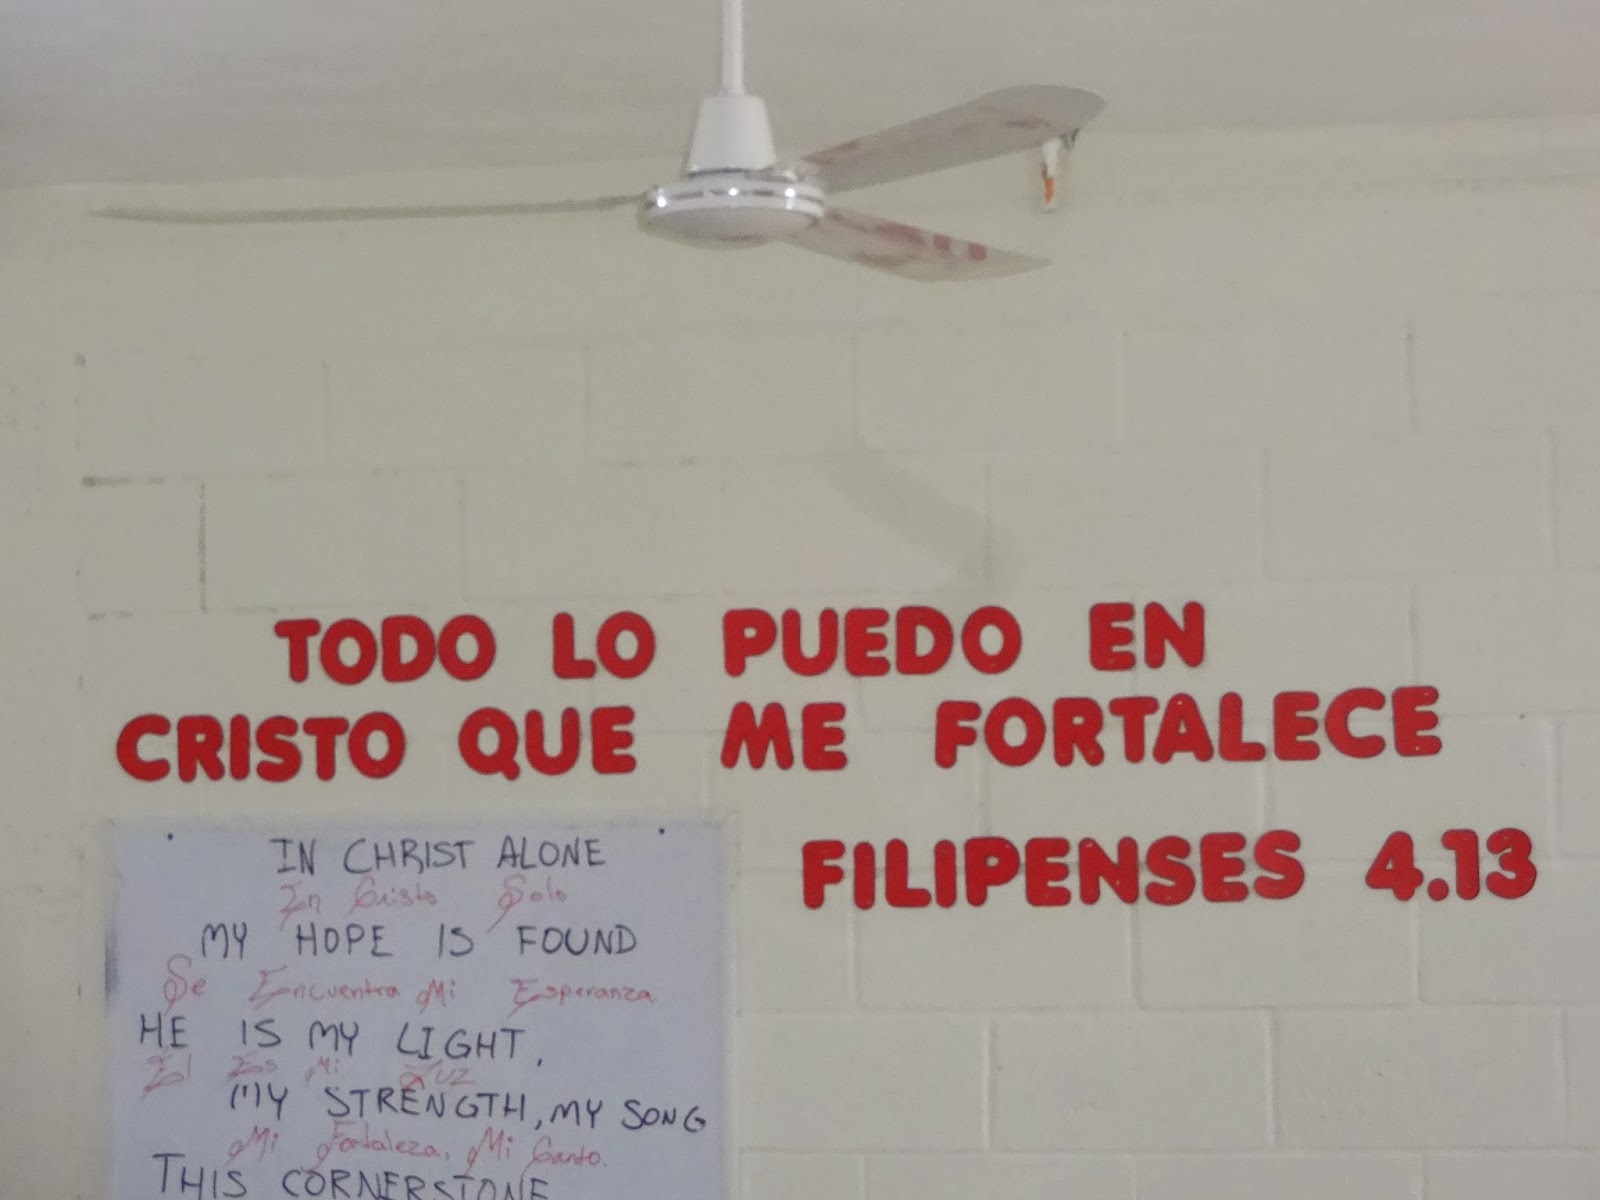 TODO LO PUEDO EN
CRISTO QUE ME FORTALECE
FILIPENSES 4.13
IN CHRIST ALONE
In Cristo Solo
MY HOPE IS FOUND
Se Encuentra Mi Esperanza
HE IS MY LIGHT,
El Es Mi Luz
MY STRENGTH, MY SONG
Mi Fortaleza, Mi Canto.
THIS CORNERSTONE